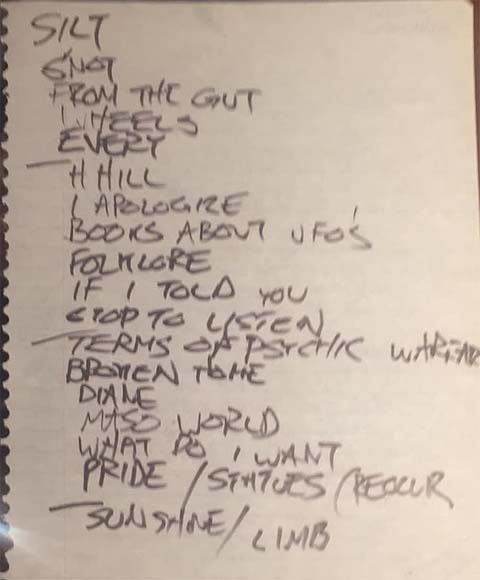 SILT
SNOT
FROM THE GUT
WHEELS
EVERY
H HILL
I APOLOGIZE
BOOKS ABOUT UFO'S
FOLKLORE
IF I TOLD YOU
STOP TO LISTEN
TERMS OF PSYCHIC WARFARE
BROKEN HOME
DIANE
MASO WORLD
WHAT DO I WANT
PRIDE / STATUES / REOCUR
SUNSHINE / LIMB